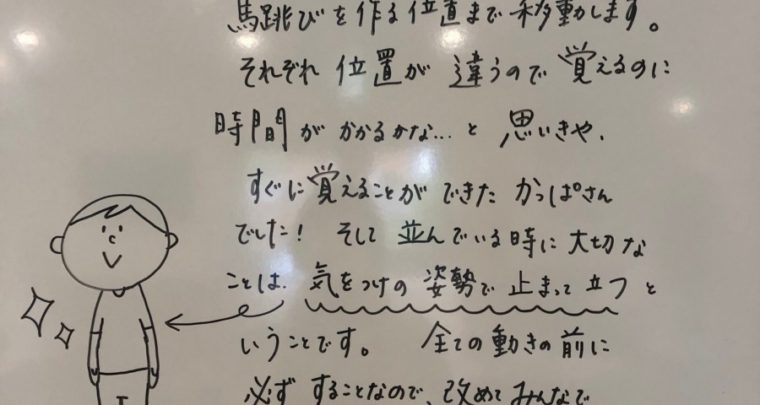 馬跳びを作る位置まで移動します。
それぞれ位置が違うので覚えるのに
時間がかかるかな...と思いきや、
すぐに覚えることができたかっぱさん
でした！そして並んでいる時に大切な
ことは、気をつけの姿勢で止まって立つと
いうことです。全ての動きの前に
必ずすることなので、改めてみんなで